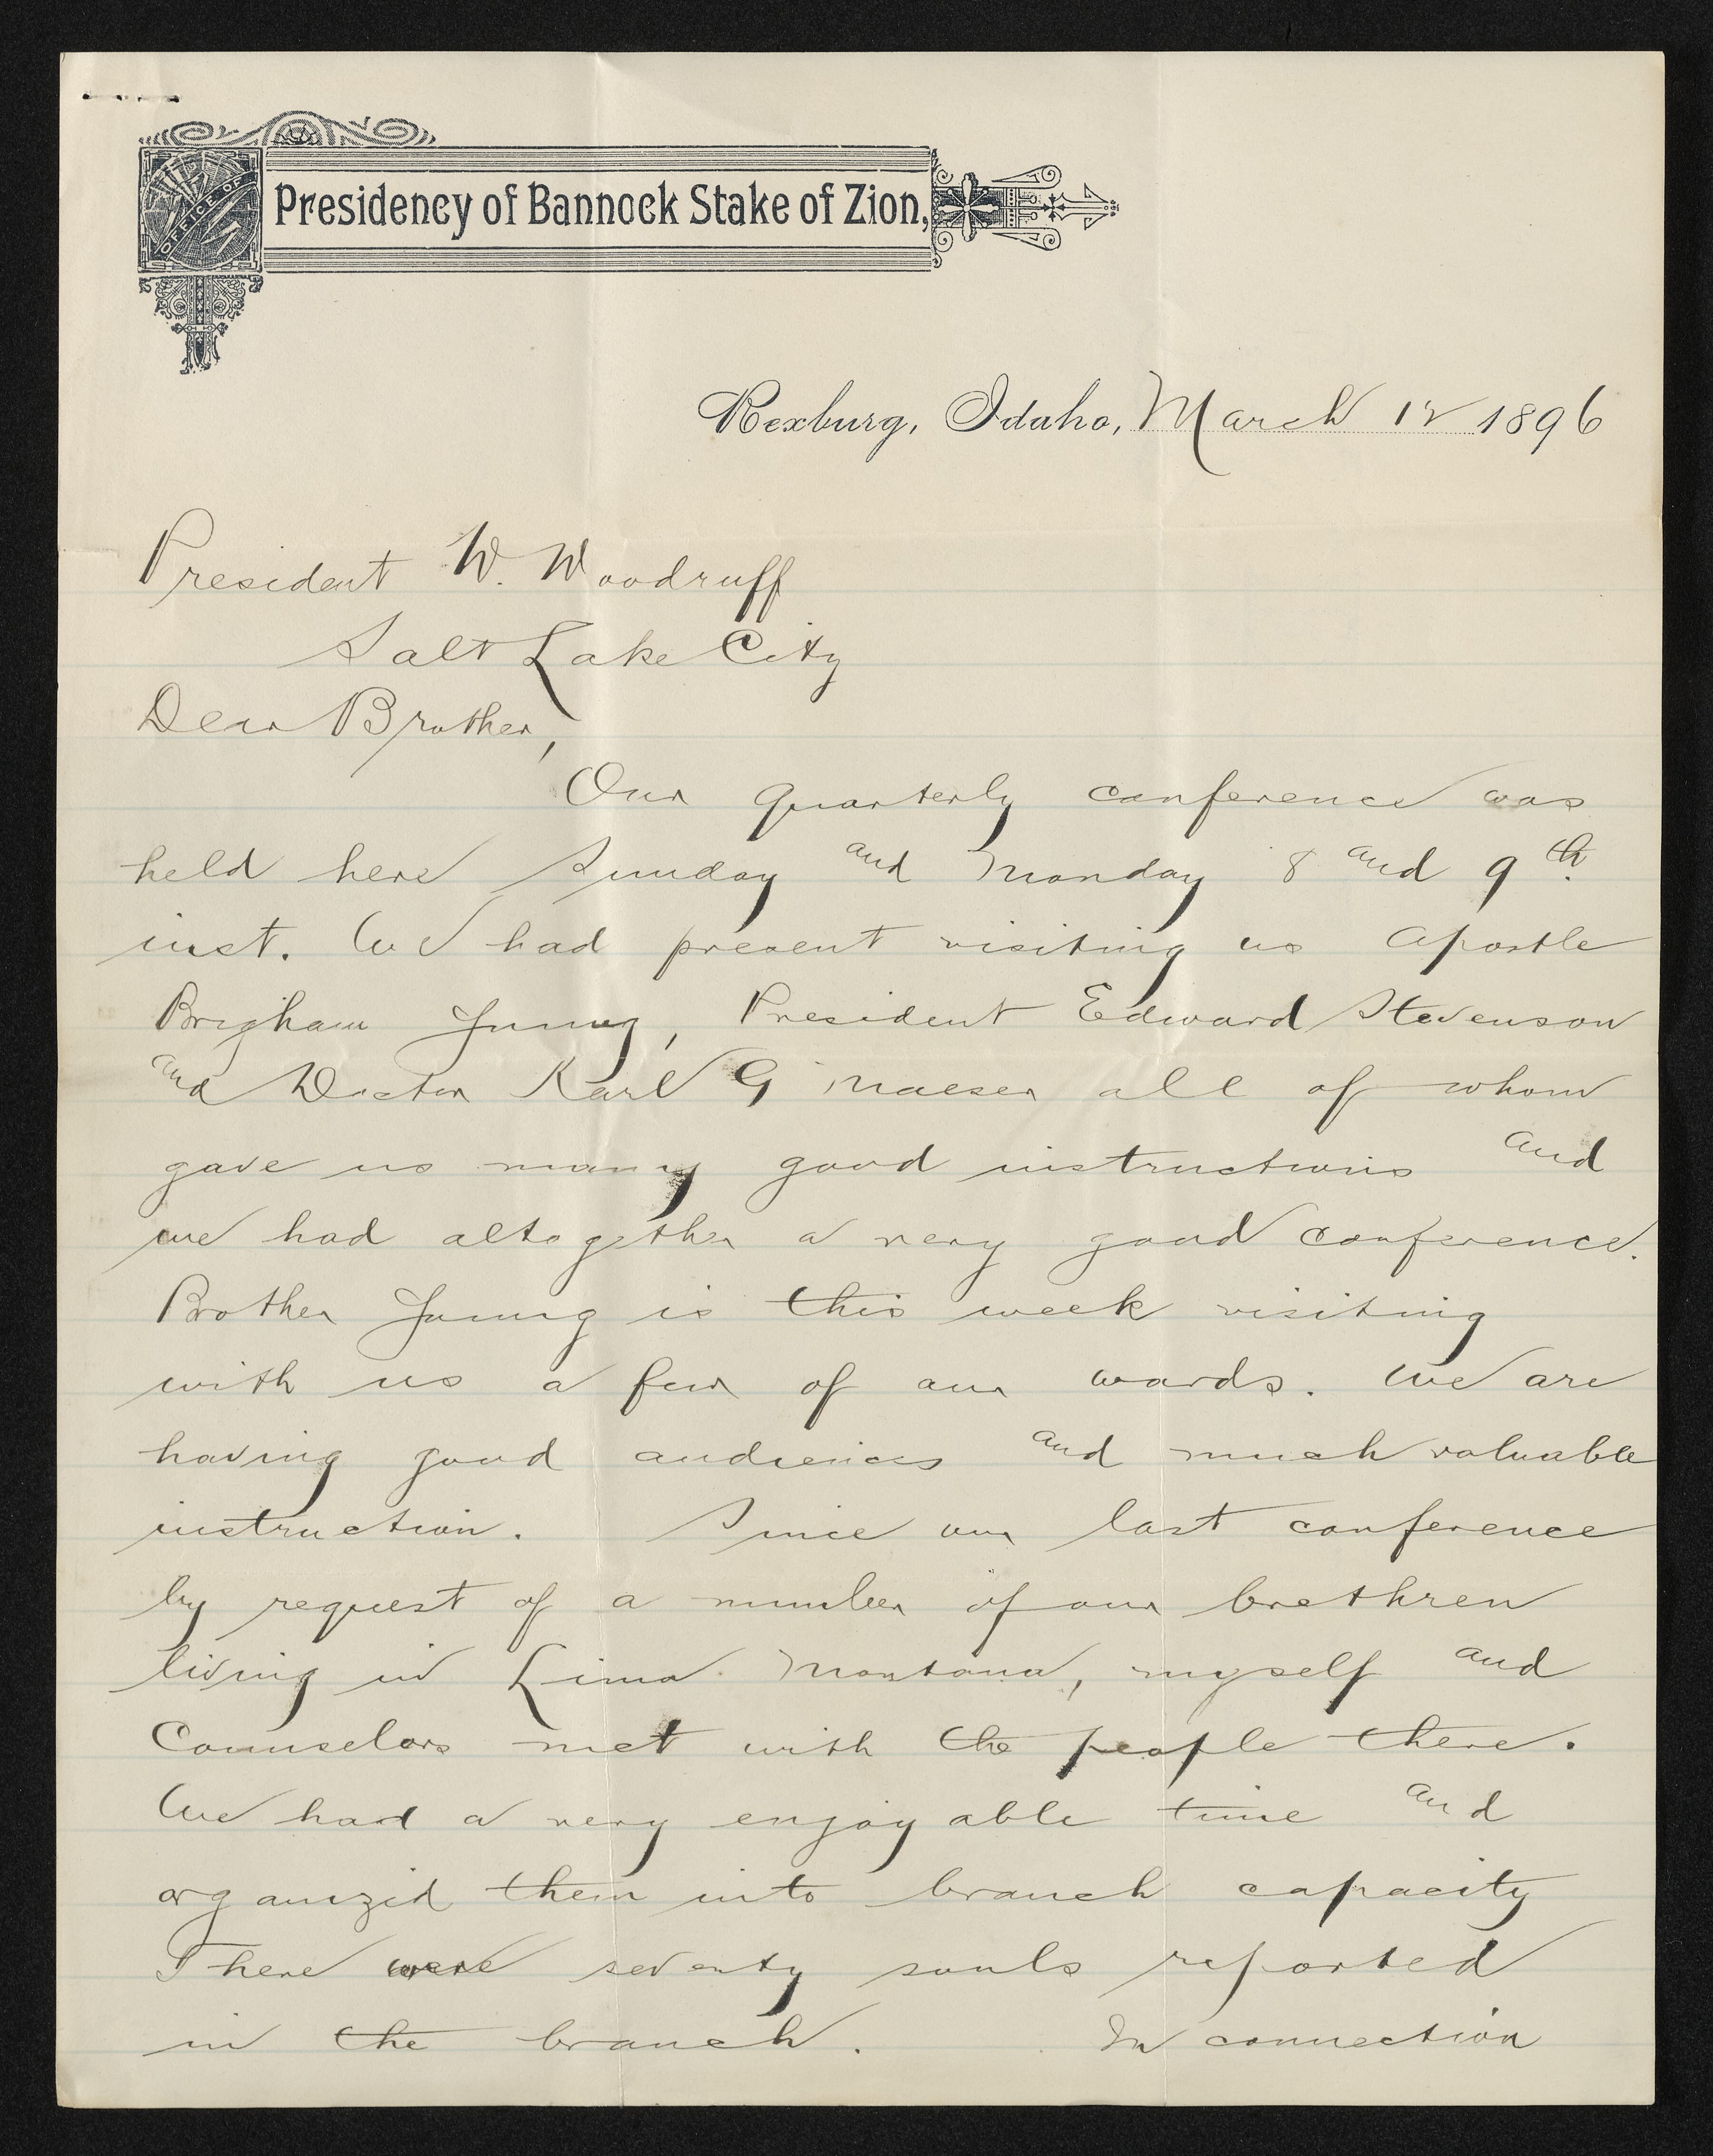 OFFICE OF
Presidency of Bannock Stake of Zion,
Rexburg, Idaho, March 12 1896
President W. Woodruff
Salt Lake City
Dear Brother,
Our quarterly conference was
held here Sunday and Monday 8 and 9th
inst. We had present visiting us Apostle
Brigham Young, President Edward Stevenson
and Doctor Karl G Maeser all of whom
gave us many good instructions and
we had altogether a very good conference.
Brother Young is this week visiting
with us a few of our wards. We are
having good audiences and much valuable
instruction. Since our last conference
by request of a number of our brethren
living in Lima Montana, myself and
Counselors met with the people there.
We had a very enjoyable time and
organized them into branch capacity
There were seventy souls reported
in the branch. In connection